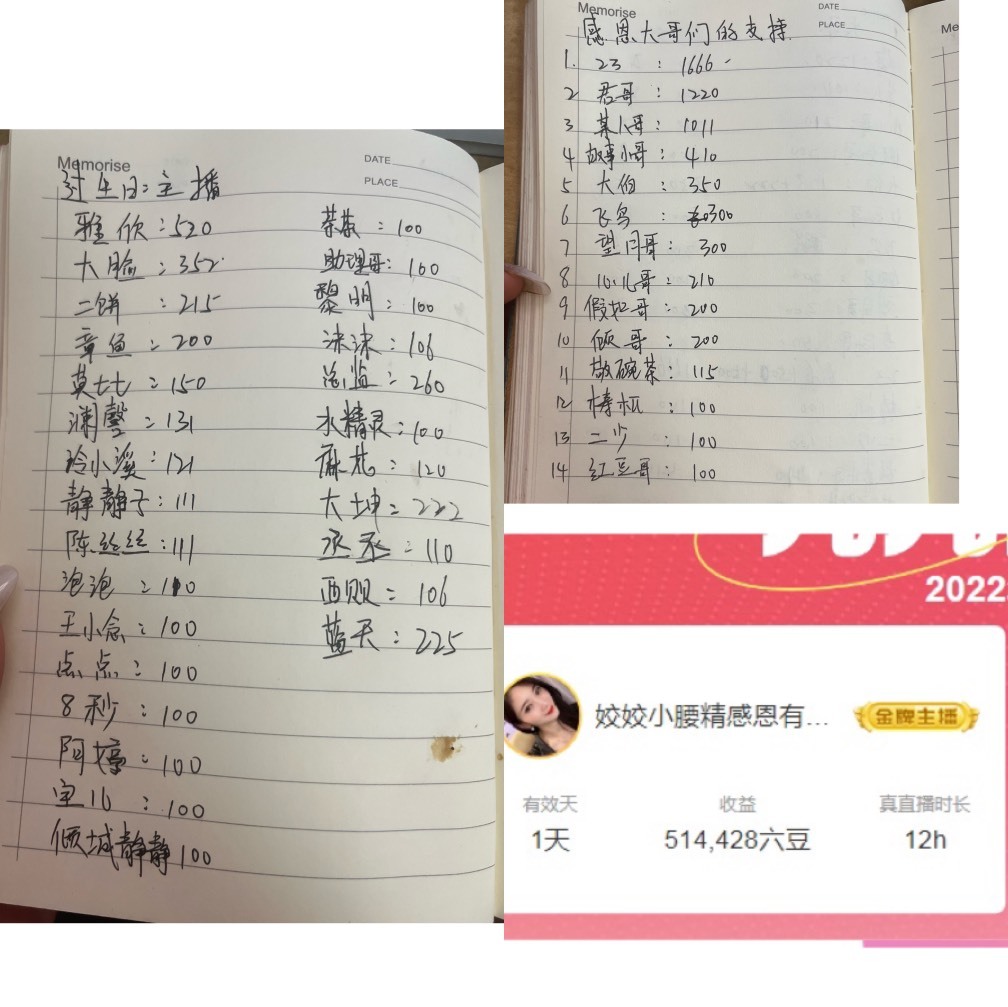 Memorise
DATE
PLACE
过生日:主播
雅欣:520
大脸:352
二饼:215
章鱼:200
莫七七:150
渊馨:131
玲小溪:121
静静子:111
陈丝丝:111
泡泡:100
王小念:100
点点:100
8秒:100
阿婷:100
宝儿:100
倾城静静100
茶茶:100
助理哥:100
黎明:100
沫沫:106
总监:260
水精灵:100
麻花:120
大坤:222
丞丞:110
西贝:106
蓝天:225
Memorise
DATE
PLACE
Me
感恩大哥们的支持
1. 23:1666
2 君哥:1220
3 某人哥:1011
4 故事小哥:410
5 大伯:350
6 飞鸟:300
7 望月哥:300
8 哥:210
9 假如哥:200
10 倾哥:200
11 敬碗茶:115
12 :100
13 二少:100
14 红豆哥:100
2022
姣姣小腰精感恩有...
金牌主播
有效天 收益 真直播时长
1天 514,428六豆 12h